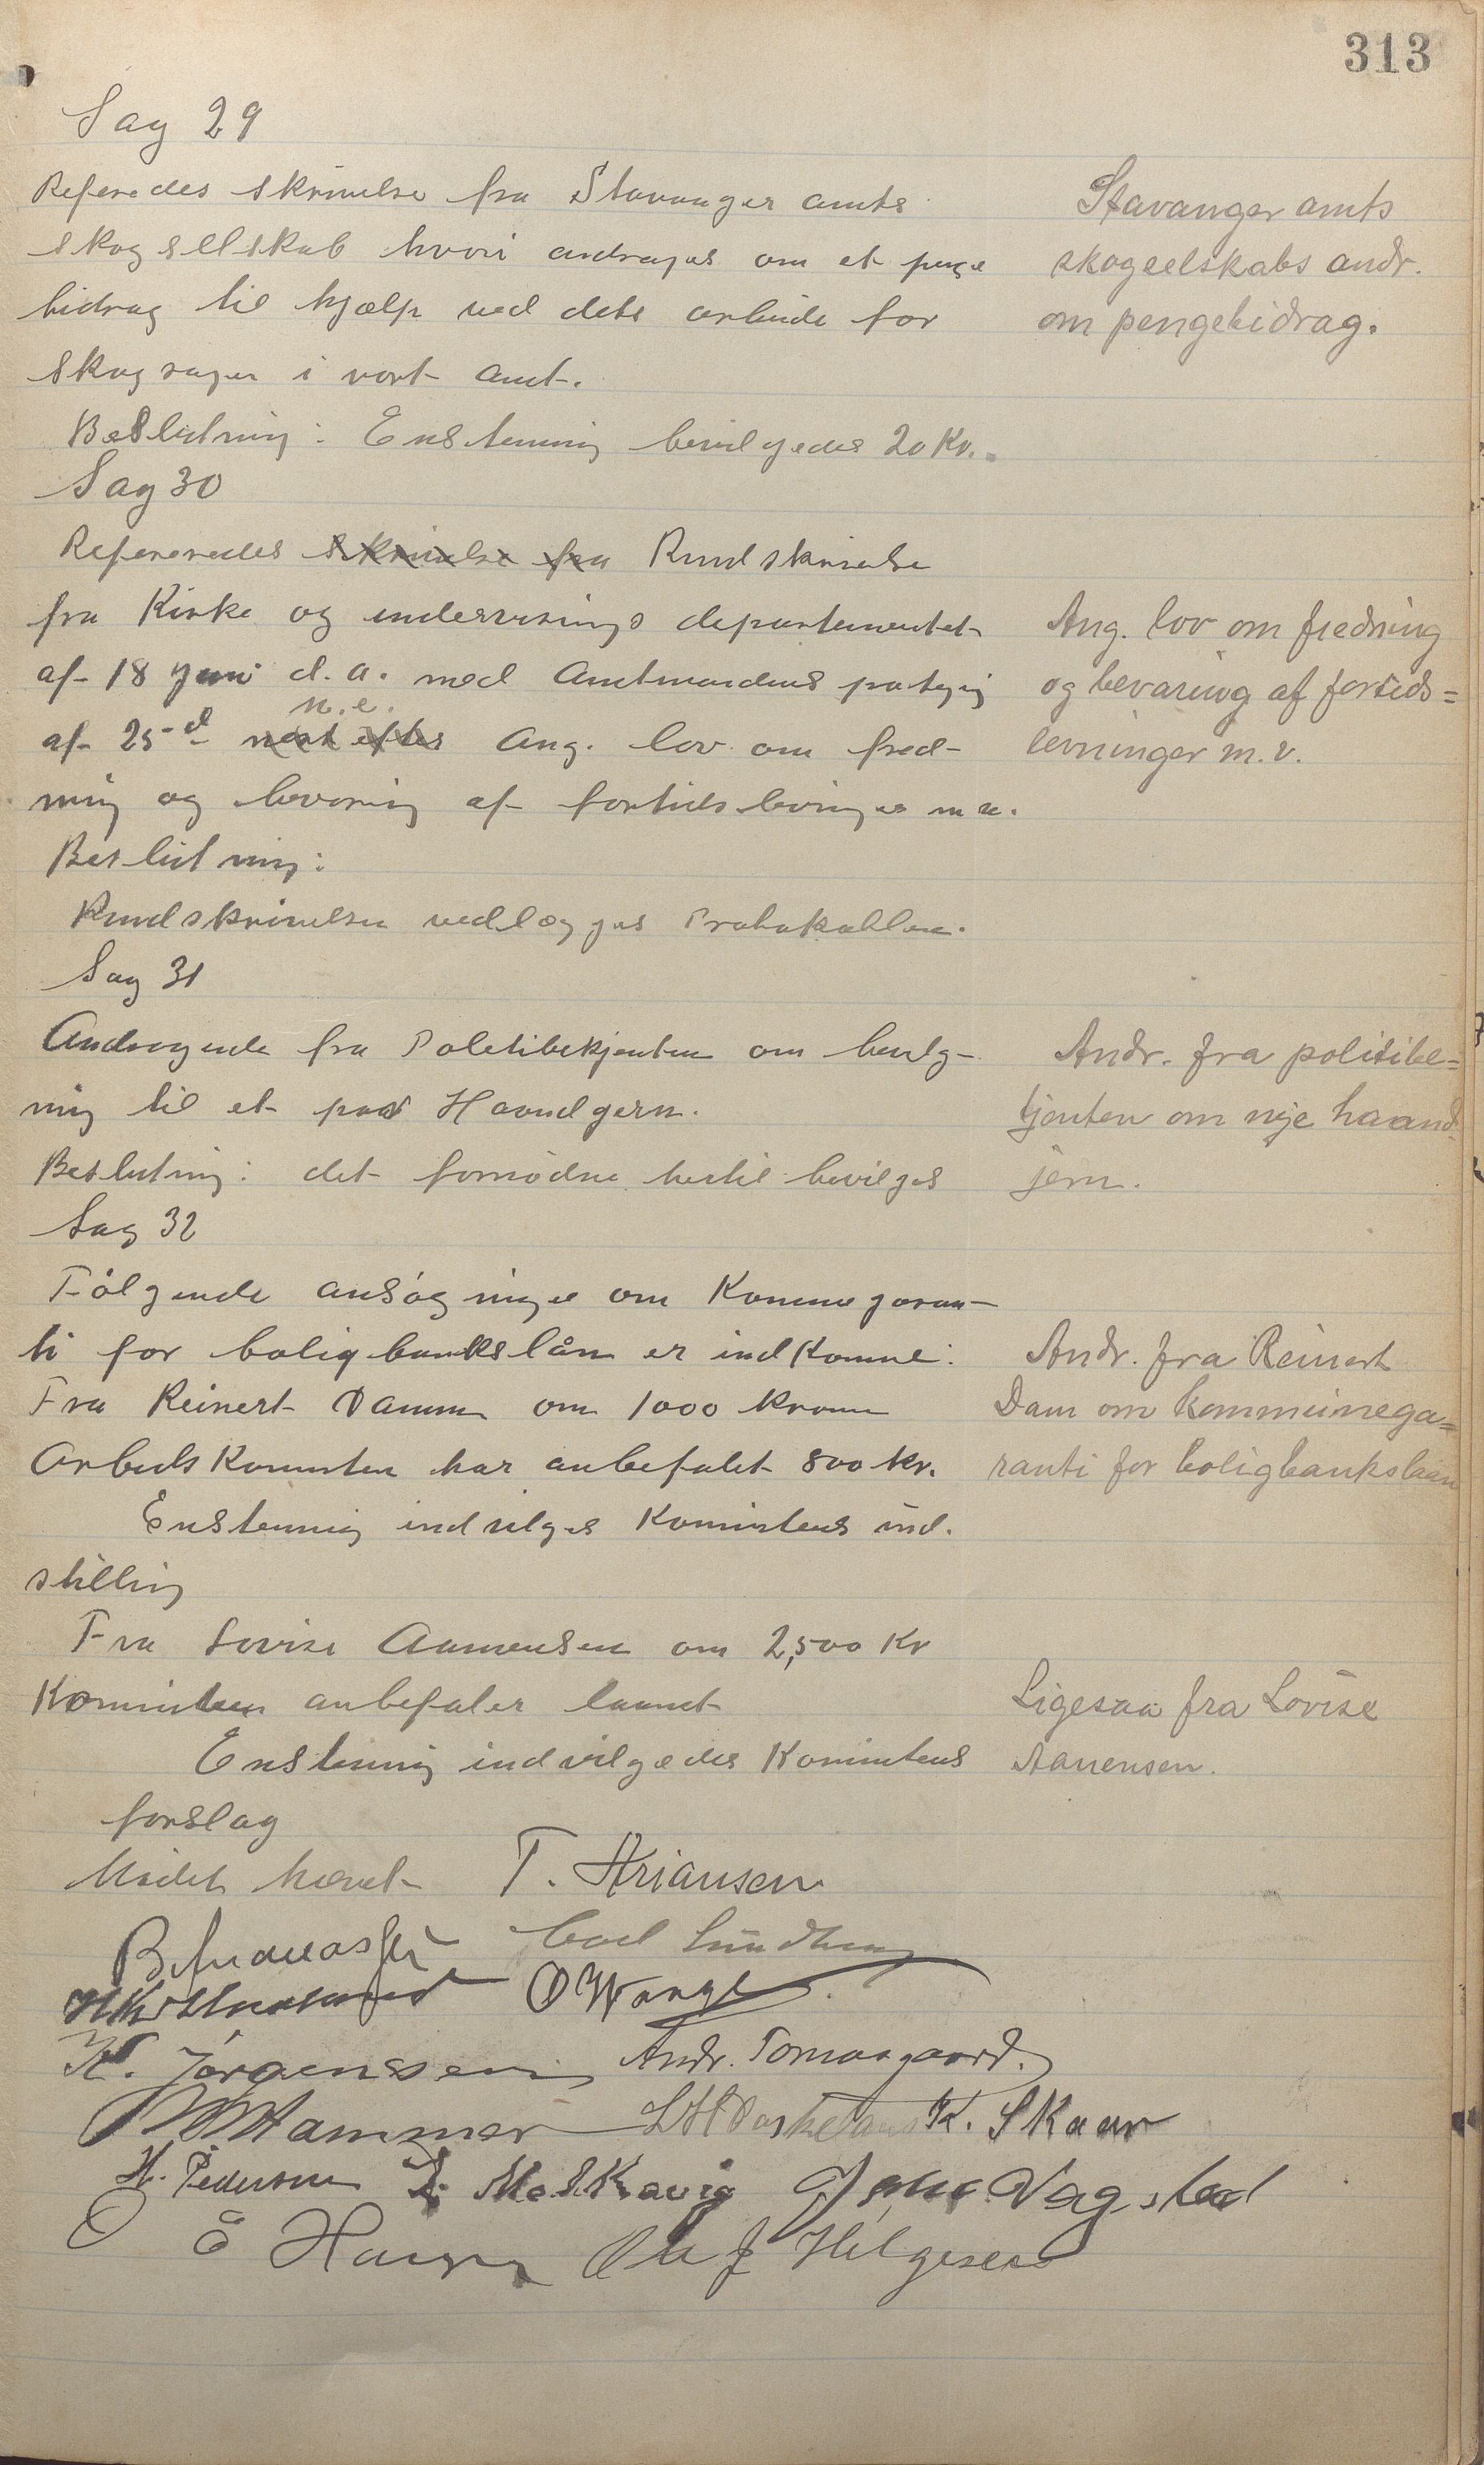 313
Sag 29
Referedes skrivelse fra Stavanger amts
skogsellskab hvori andrages om et penge
bidrag til hjælp ved dets arbeide for
skogsagen i vort amt.
Stavanger amts
skogselskabs andr.
om pengebidrag.
Beslutning: Enstemmig bevilgedes 20 Kr.
Sag 30
Refereredes skrivelse fra Rundskrivelse
fra Kirke og undervisnings departementet
af 18 juni d.a. med Amtmandens påtegning
n.e.
af 25-d næst efter Ang. lov om fred-
ning og bevaring af fortidslevninger m.v.
Ang. lov om fredning
og bevaring af fortids=
levninger m.v.
Beslutning:
Rundskrivelsen vedlægges Protokollen.
Sag 31
Andragende fra Politibetjenten om bevilg-
ning til et par Haandjern.
Beslutning: det fornødne hertil bevilges
Andr. fra politibe=
tjenten om nye haand-
jern.
Sag 32
Følgende ansøgninger om Kommunegaran-
ti for boligbankslån er indkomne:
Fra Reinert Damm om 1000 kroner
Arbeidskomiteen har anbefalet 800 kr.
Andr. fra Reinert
Dam om kommunega=
ranti for boligbankslaan
Enstemmig indvilges Komiteens ind.
stilling
Fra Lovise Aanensen om 2,500 Kr
Komiteen anbefaler laanet
Enstemmig indvilgedes Komiteens
forslag
Ligesaa fra Lovise
Aanensen.
Mødet hævet
T. Stiansen
Carl Lundberg
O Wange
K. Jørgenssen
Andr. Tomasgaard.
Hammer
K. Skaar
H. Pedersen
Vagstad
Olaf Helgesen